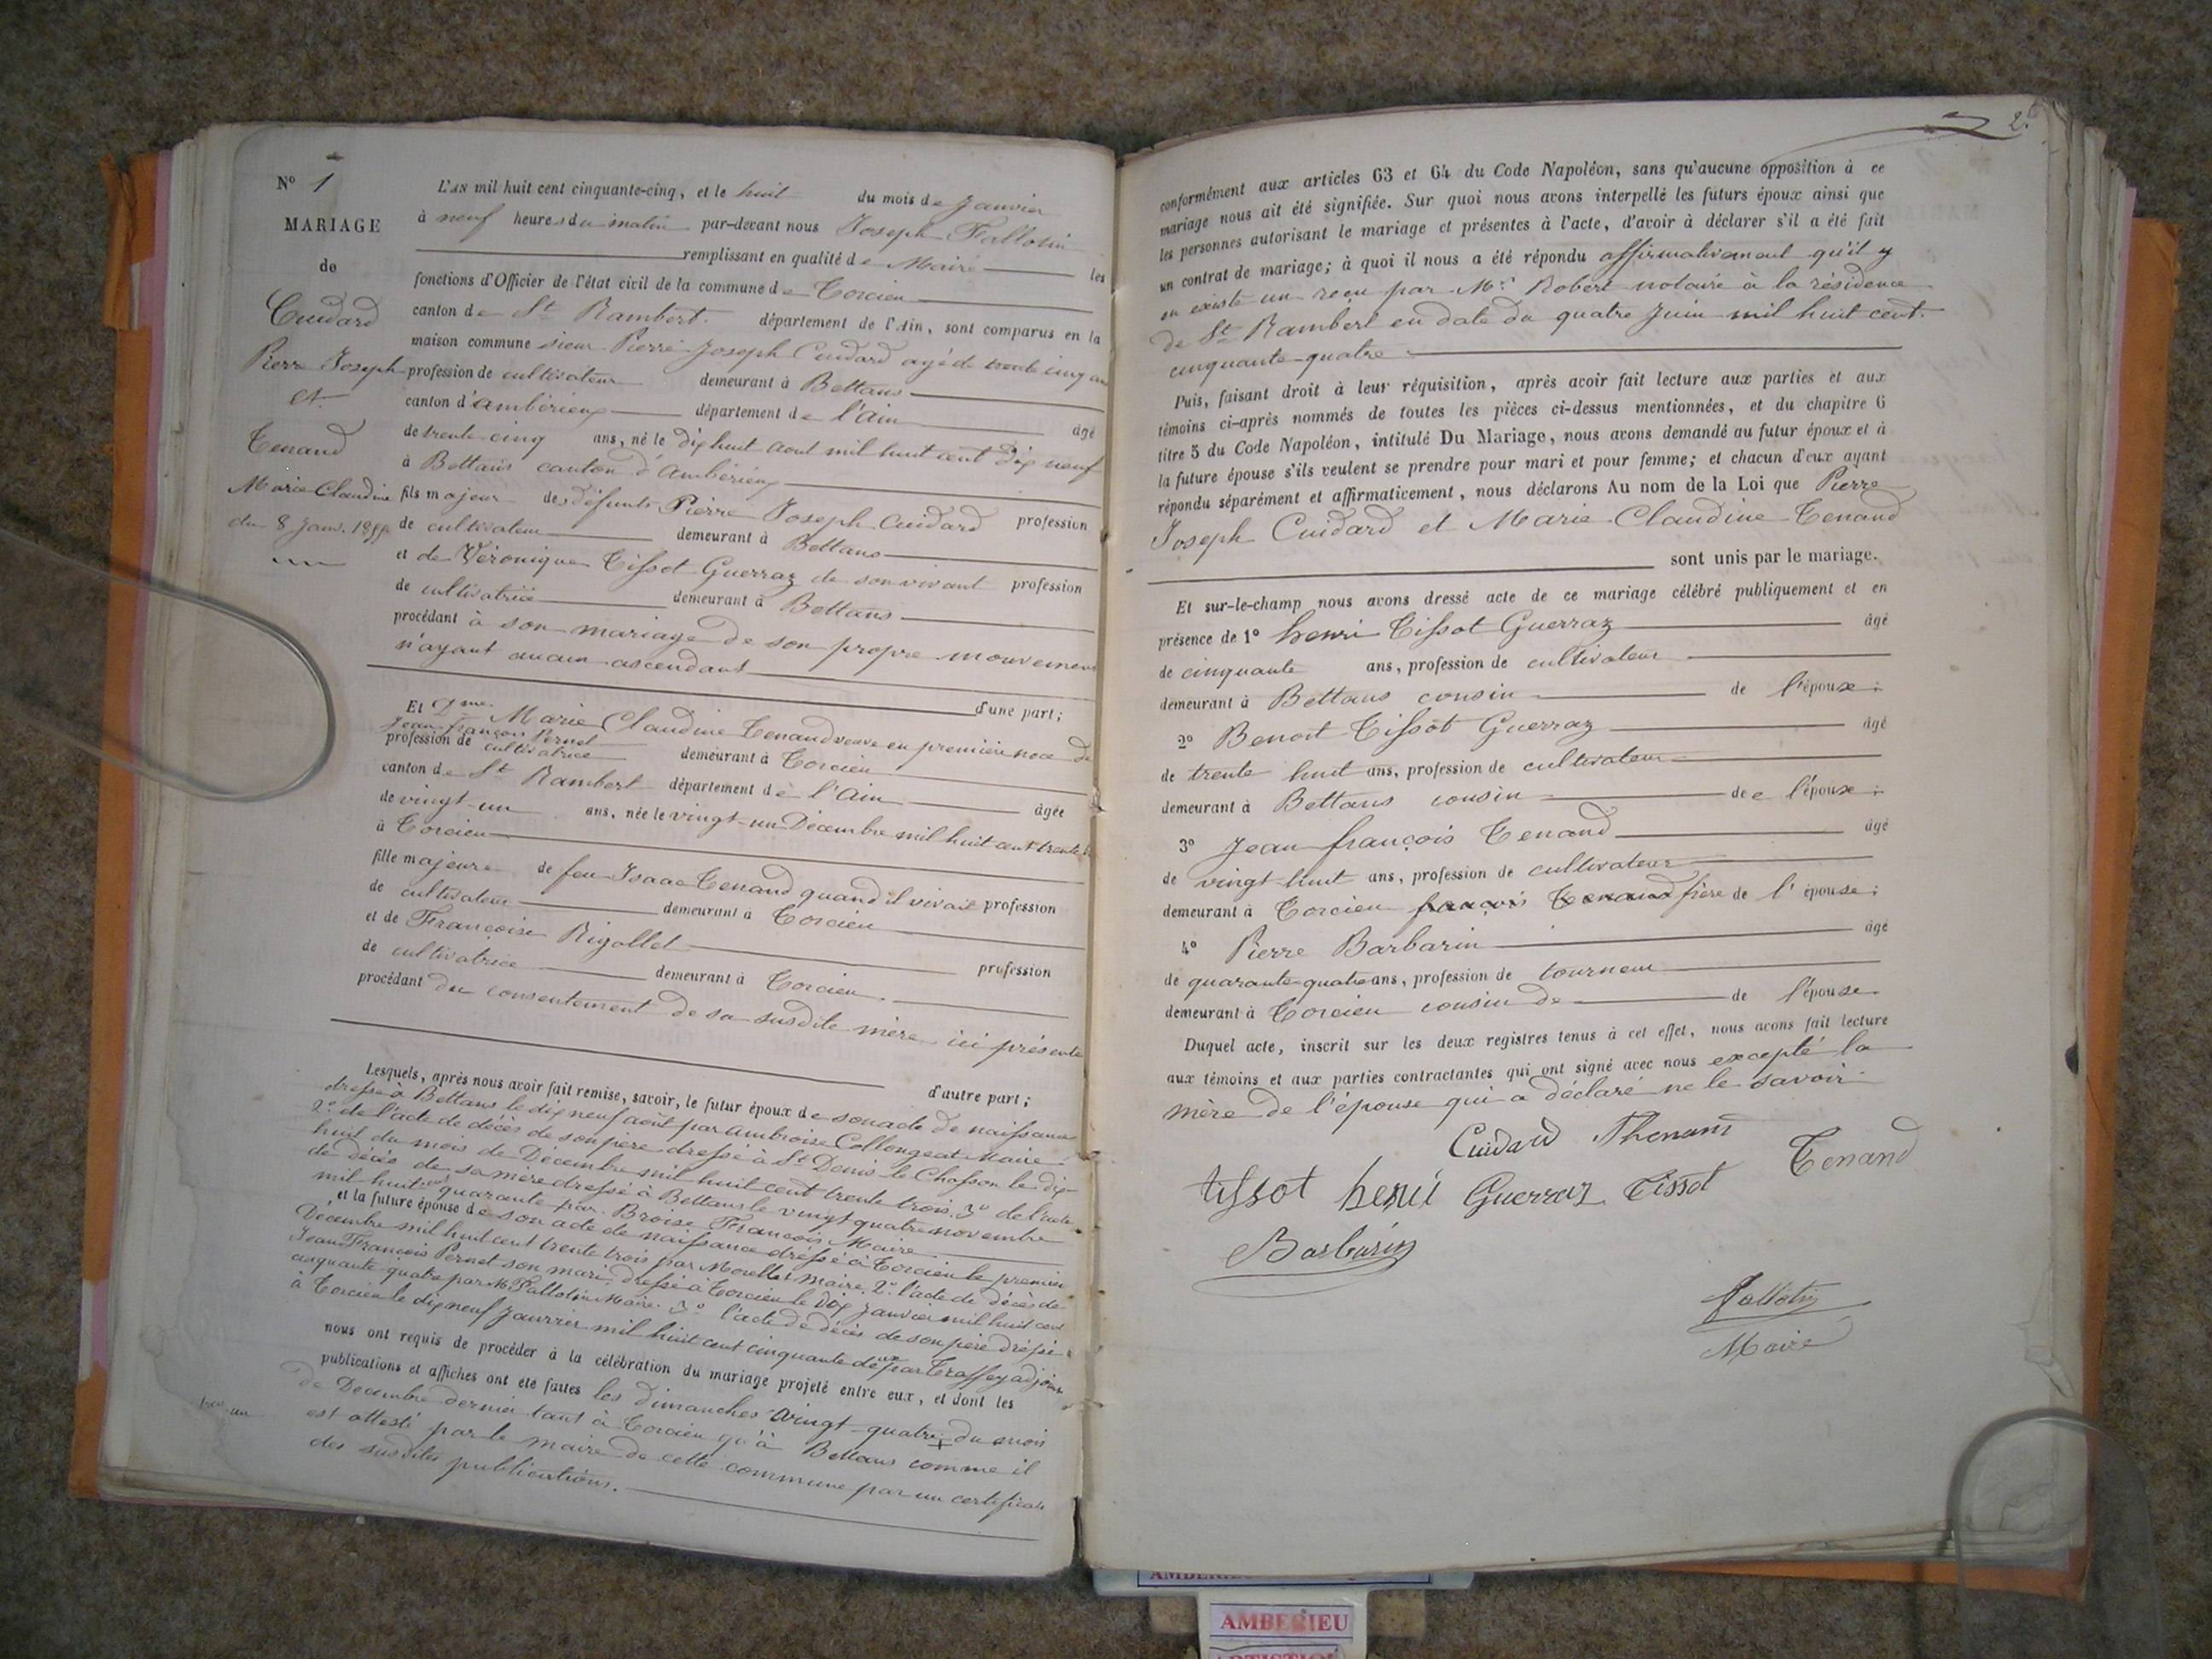 N° 1
MARIAGE
de
Cuidard
Pierre Joseph
et
Tenand
Marie Claudine
du 8 Janv. 1855
L'AN mil huit cent cinquante-cinq, et le huit du mois de Janvier
à neuf heures du matin par-devant nous Joseph Fallotin
remplissant en qualité de Maire les
fonctions d'Officier de l'état civil de la commune de Torcieu
canton de St Rambert. département de l'Ain, sont comparus en la
maison commune sieur Pierre Joseph Cuidard agé de trente cinq ans
profession de cultivateur demeurant à Bettans
canton d'ambérieux département de l'ain âgé
de trente cinq ans, né le dix huit aout mil huit cent dix neuf
à Bettans canton d'ambérieux
fils majeur des défunts Pierre Joseph Cuidard profession
de cultivateur demeurant à Bettans
et de Véronique Tissot Guerraz de son vivant profession
de cultivatrice demeurant à Bettans
procédant à son mariage de son propre mouvement
n'ayant aucun ascendant
d'une part;
Et Dme Marie Claudine Tenand veuve en première noce de
Jean françois Pernet
profession de cultivatrice demeurant à Torcieu
canton de St Rambert département de l'ain âgée
de vingt-un ans, née le vingt-un Décembre mil huit cent trente
à Torcieu
fille majeure de feu Isaac Tenand quand il vivait profession
de cultivateur demeurant à Torcieu
et de Françoise Rigollet profession
de cultivatrice demeurant à Torcieu.
procédant du consentement de sa susdite mère ici présente
d'autre part;
Lesquels, après nous avoir fait remise, savoir, le futur époux de son acte de naissance
dressé à Bettans le dix neuf août par ambroise Collongeat Maire
2° de l'acte de décès de son père dressé à St Denis le Chosson le dix
huit du mois de Décembre mil huit cent trente trois. 3° de l'acte
de décès de sa mère dressé à Bettans le vingt quatre novembre
mil huit cent quarante par Broise François Maire
, et la future épouse de son acte de naissance dressé à Torcieu le premier
Décembre mil huit cent trente trois par Morellet maire. 2° l'acte de décès de
Jean François Pernet son mari, dressé à Torcieu le dix Janvier mil huit cent
cinquante quatre par Mr Fallotin Maire. 3° l'acte de décès de son père dressé
à Torcieu le dix neuf Janvier mil huit cent cinquante deux par Traffey adjoint
nous ont requis de procéder à la célébration du mariage projeté entre eux, et dont les
publications et affiches ont été faites les dimanches vingt quatre du mois
de Décembre dernier tant à Torcieu qu'à Bettans comme il
est attesté par le maire de cette commune par un certificat
des susdites publications.
2.
conformément aux articles 63 et 64 du Code Napoléon, sans qu'aucune opposition à ce
mariage nous ait été signifiée. Sur quoi nous avons interpellé les futurs époux ainsi que
les personnes autorisant le mariage et présentes à l'acte, d'avoir à déclarer s'il a été fait
un contrat de mariage; à quoi il nous a été répondu affirmativement qu'il y
en existe un reçu par Mr Robert notaire à la résidence
de St Rambert en date du quatre Juin mil huit cent.
cinquante-quatre
Puis, faisant droit à leur réquisition, après avoir fait lecture aux parties et aux
témoins ci-après nommés de toutes les pièces ci-dessus mentionnées, et du chapitre 6
titre 5 du Code Napoléon, intitulé Du Mariage, nous avons demandé au futur époux et à
la future épouse s'ils veulent se prendre pour mari et pour femme; et chacun d'eux ayant
répondu séparément et affirmativement, nous déclarons Au nom de la Loi que Pierre
Joseph Cuidard et Marie Claudine Tenand
sont unis par le mariage.
Et sur-le-champ nous avons dressé acte de ce mariage célébré publiquement et en
présence de 1° henri Tissot Guerraz âgé
de cinquante ans, profession de cultivateur
demeurant à Bettans cousin de l'époux;
2° Benoit Tissot Guerraz âgé
de trente huit ans, profession de cultivateur
demeurant à Bettans cousin de l'époux;
3° Jean françois Tenand âgé
de vingt huit ans, profession de cultivateur
demeurant à Torcieu françois Tenand frère de l'épouse;
4° Pierre Barbarin âgé
de quarante quatre ans, profession de tourneur
demeurant à Torcieu cousin de de l'épouse
Duquel acte, inscrit sur les deux registres tenus à cet effet, nous avons fait lecture
aux témoins et aux parties contractantes qui ont signé avec nous excepté la
mère de l'épouse qui a déclaré ne le savoir
Cuidard Thenant Tenand
tissot henri Guerraz Tissot
Barbarin
Fallotin
Maire
AMBERIEU